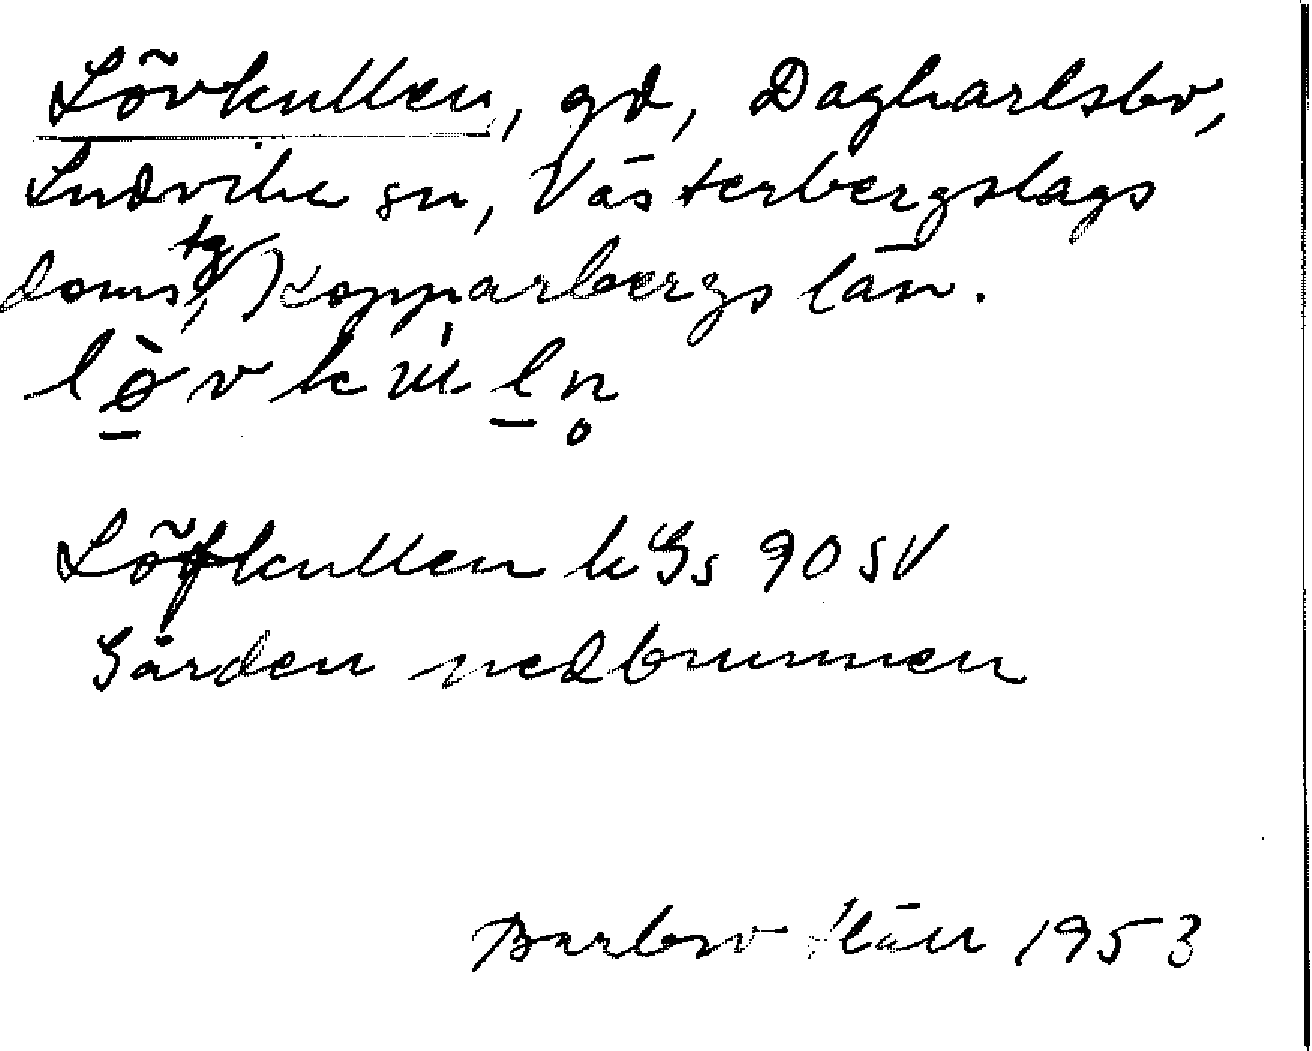 Lövkullen, gd, Dagkarlsbo,
Ludvika sn, Västerbergslags
doms tg, Kopparbergs län.
Löfkullen kGs 90 SV
Gården nedbrunnen
1953